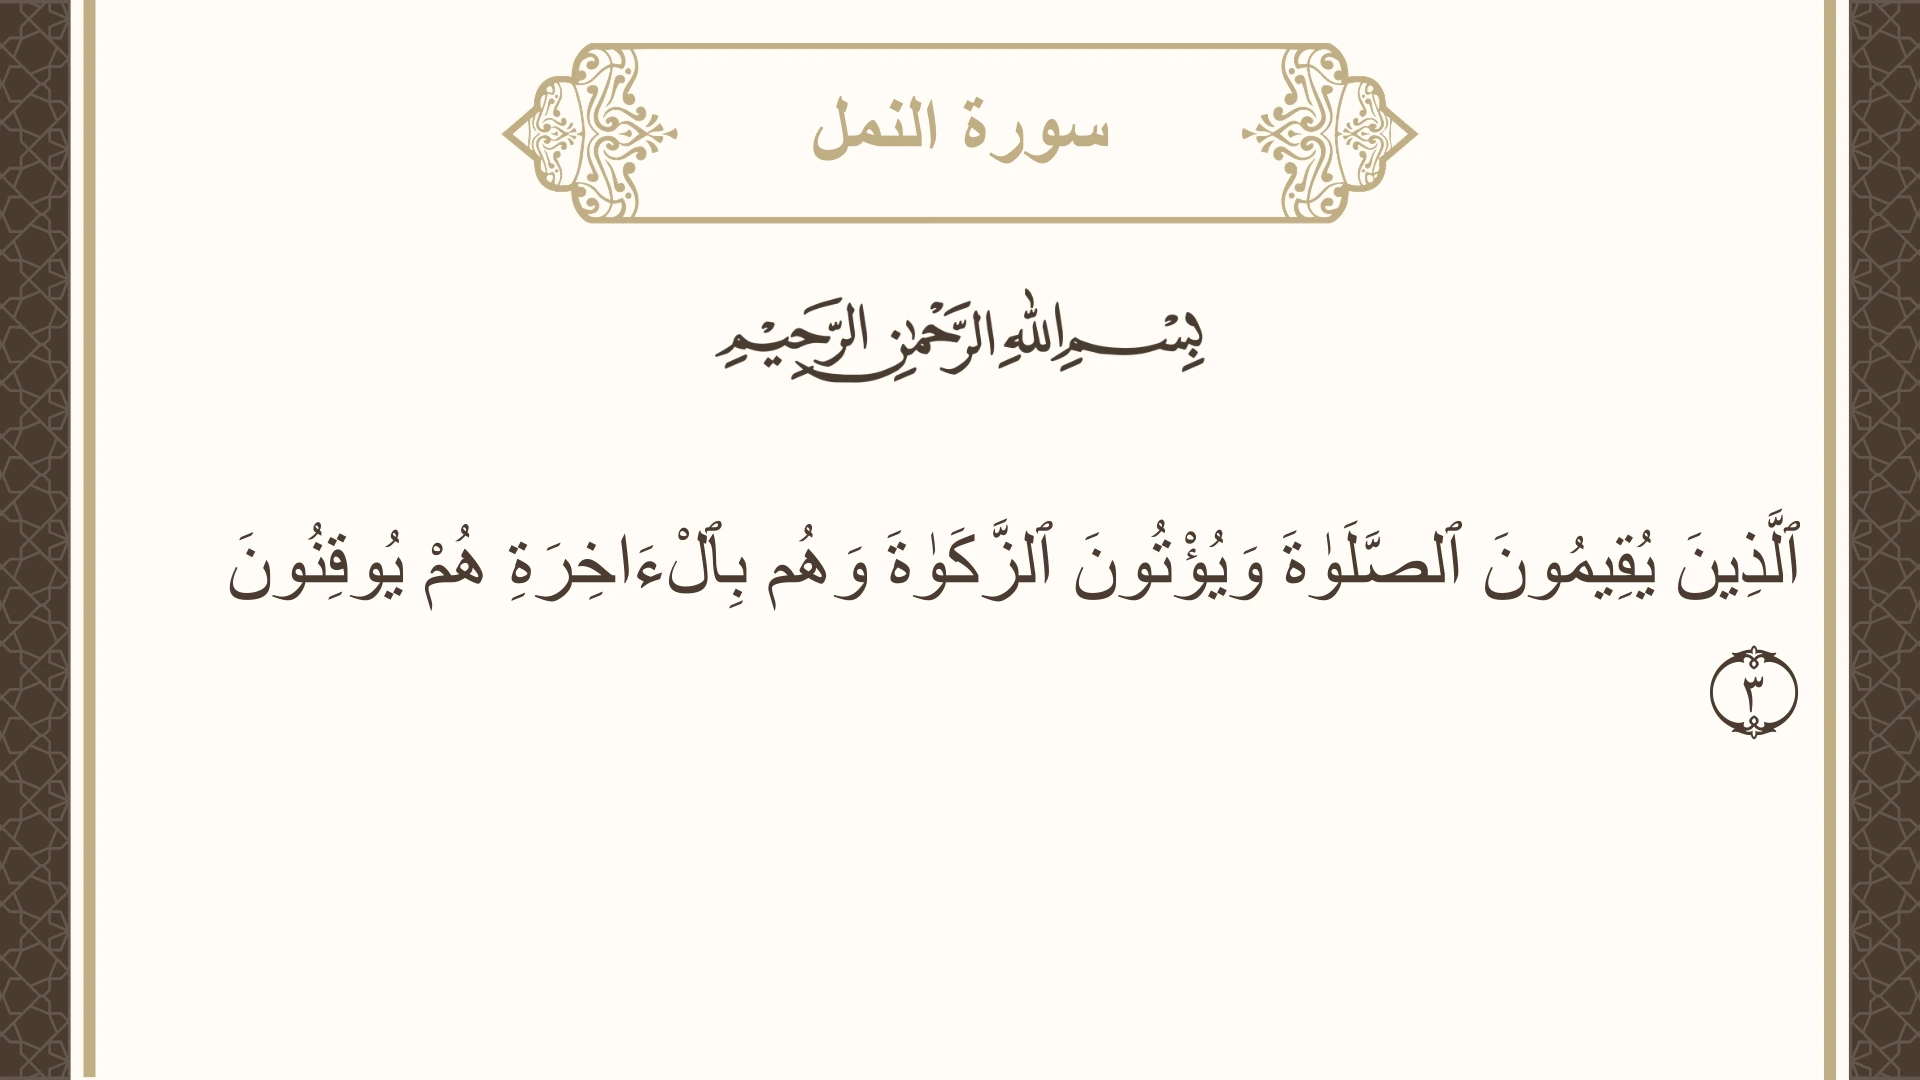 سورة النمل
بِسْمِ اللهِ الرَّحْمٰنِ الرَّحِيْمِ
ٱلَّذِينَ يُقِيمُونَ ٱلصَّلَوٰةَ وَيُؤْتُونَ ٱلزَّكَوٰةَ وَهُم بِٱلْءَاخِرَةِ هُمْ يُوقِنُونَ
٣